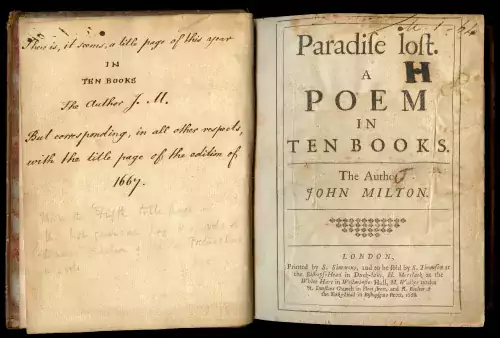 There is, it seems, a title page of this year
IN
TEN BOOKS
The Author J. M.
But corresponding, in all other respects,
with the title page of the edition of
1667.
Fifth title page
Paradiſe loſt.
A
H
POEM
IN
TEN BOOKS.
The Author
JOHN MILTON.
LONDON,
Printed by S. Simmons, and to be ſold by S. Thomſon at
the Biſhops-Head in Duck-lane, H. Mortlack at the
White Hart in Weſtminſter Hall, M. Walker under
St. Dunſtons Church in Fleet-ſtreet, and R. Boulter at
the Turks-Head in Biſhopſgate ſtreet, 1668.